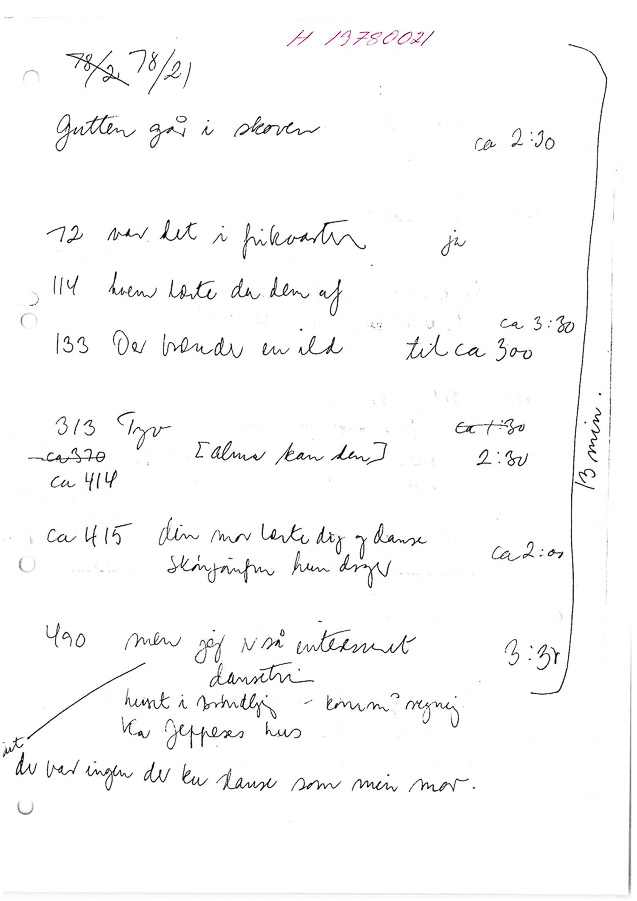 H 19780021
78/2 78/21
Gutten går i skoven ca 2:30
72 var det i frikvarter ja
114 hvem lærte du dem af
ca 3:30
133 Der brænder en ild til ca 300
313 Tyv ca 1:30
ca 370 [alma kan den] 2:30
ca 414
13 min.
ca 415 din mor lærte dig og danse ca 2:00
hun
490 men jeg er så interesseret
dansetrin
i
Ka Jeppeses hus
der var ingen der ku danse som min mor.